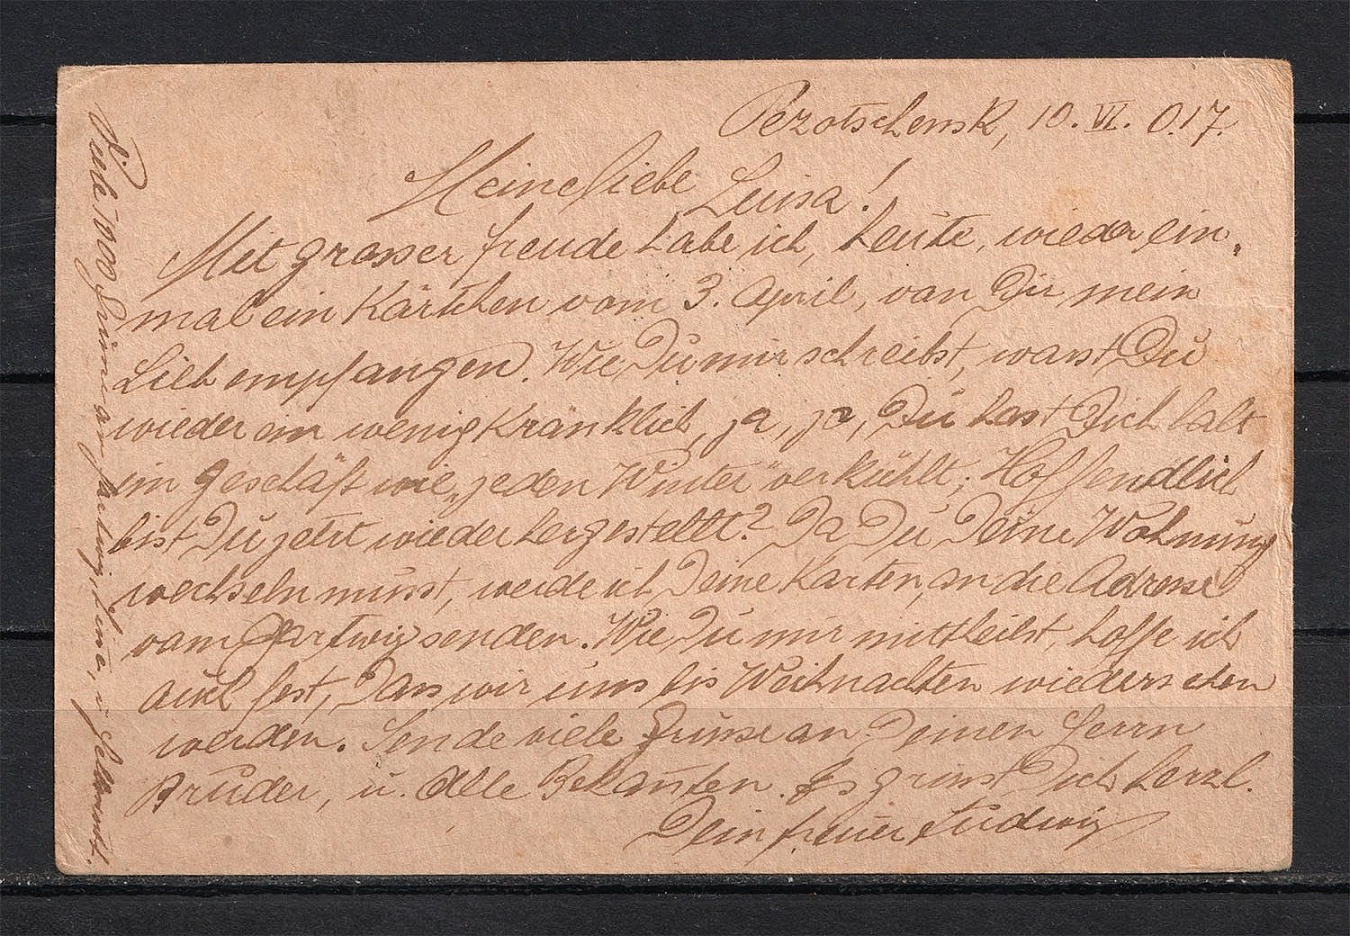 Pezotschensk, 10. VI. 017.
Meine liebe Luisa!
Mit grosser freude habe ich, heute, wieder ein-
mal ein Kärtchen vom 3. April, von Dir mein
Lieb empfangen. Wie Du mir schreibst, warst Du
wieder ein wenig kränklich, ja, ja, Du hast Dich halt
im Geschäft wie „jeden Winter" verkühlt; Hoffendlich
bist Du jetzt wieder hergestellt? Da Du Deine Wohnung
wechseln musst, werde ich Deine Karten, an die Adresse
vom Hartwig senden. Wie Du mir mittheilst, hoffe ich
auch fest, Dass wir uns bis Weihnachten wiedersehen
werden. Sende viele Grüsse an Deinen Herrn
Bruder, u. Alle Bekanten. Es grüsst Dich herzl.
Dein treuer Ludwig
Viele 1000 Grüsse an Hartwig,